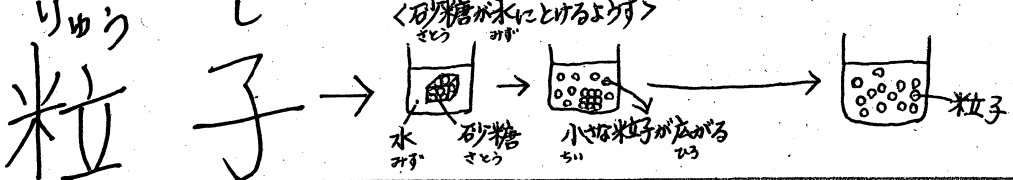 りゅうし
粒子
<砂糖が水にとけるようす>
さとう みず
水
みず
砂糖
さとう
小さな粒子が広がる
ちい ひろ
粒子